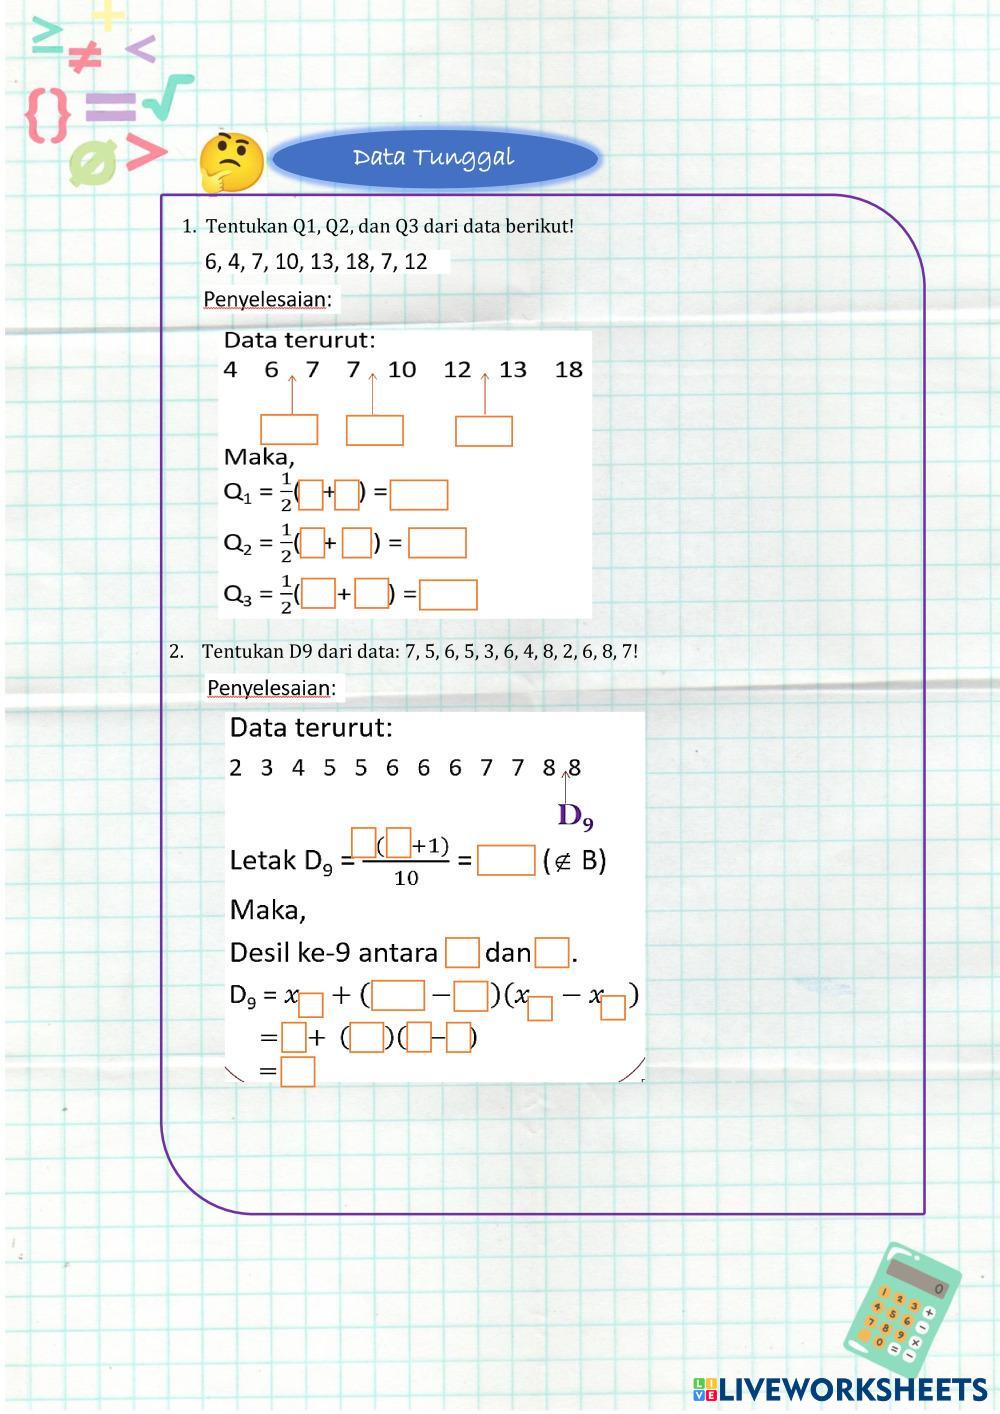 Data Tunggal
1. Tentukan Q1, Q2, dan Q3 dari data berikut!
6, 4, 7, 10, 13, 18, 7, 12
Penyelesaian:
Data terurut:
4 6 7 7 10 12 13 18
Maka,
Q₁ = 1/2( + ) =
Q₂ = 1/2( + ) =
Q₃ = 1/2( + ) =
2. Tentukan D9 dari data: 7, 5, 6, 5, 3, 6, 4, 8, 2, 6, 8, 7!
Penyelesaian:
Data terurut:
2 3 4 5 5 6 6 6 7 7 8 8
D₉
Letak D₉ = ( +1)/10 = (∉ B)
Maka,
Desil ke-9 antara dan .
D₉ = x + ( − )(x − x )
= + ( )( − )
=
LIVEWORKSHEETS